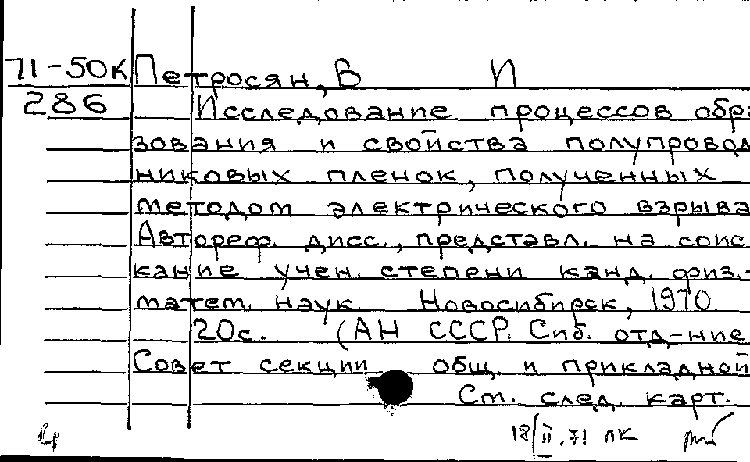 71-50к Петросян, В И
286 Исследование процессов обра
зования и свойства полупровод
никовых пленок, полученных
методом электрического взрыва
Автореф. дисс., представл. на соис
кание учен. степени канд. физ.-
матем. наук Новосибирск, 1970
20с. (АН СССР. Сиб. отд-ние
Совет секции общ. и прикладной
См. след. карт.
18/II.71 ПК